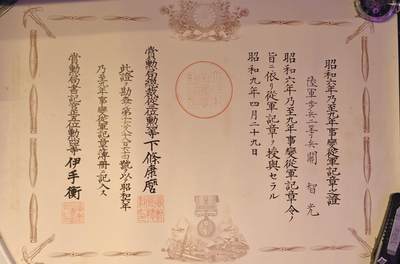 昭和六年乃至九年事變從軍記章之證
陸軍歩兵 等兵 關 智光
昭和六年乃至九年事變從軍記章令ノ
旨ニ依リ從軍記章ヲ授與セラル
昭和九年四月二十九日
賞勳局總裁從 位勳 等下條康麿
此證ヲ勘査シ第 號ヲ以テ昭和六年
乃至九年事變從軍記章簿册ニ記入ス
賞勳局書記官正五位勳 等伊手衡